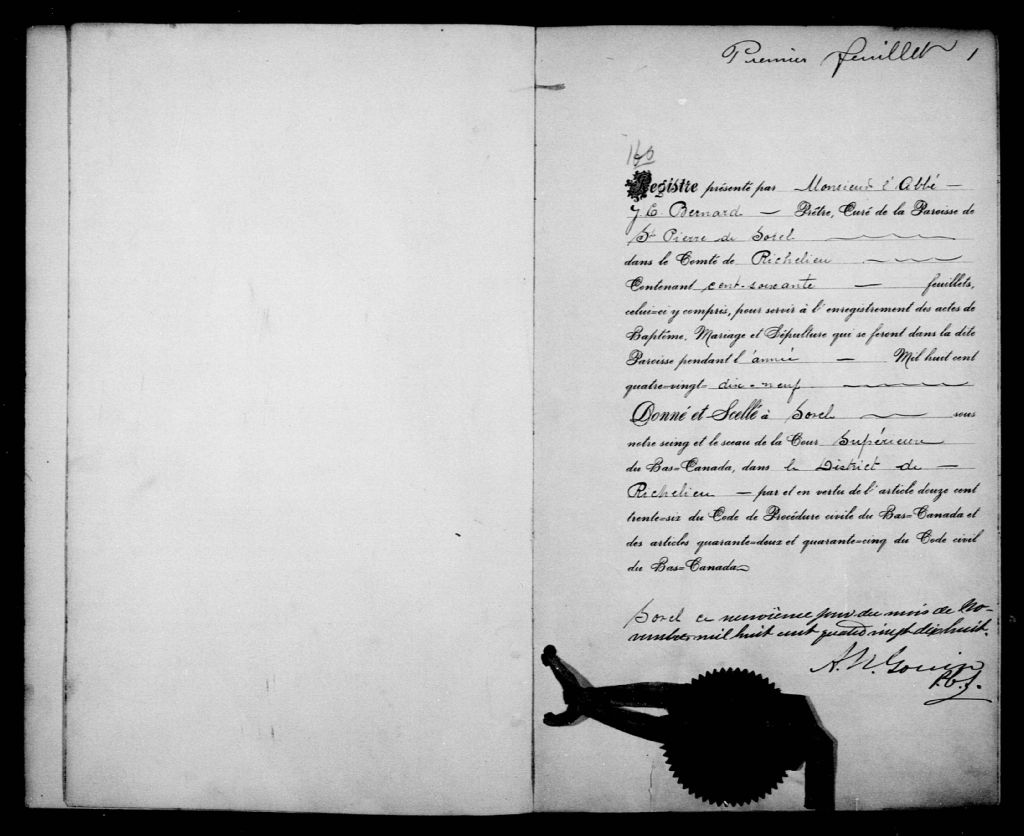 Premier feuillet 1
160
Registre présenté par Monsieur l'Abbé —
J. E. Bernard — Prêtre, Curé de la Paroisse de
St Pierre de Sorel
dans le Comté de Richelieu
Contenant cent-soixante — feuillets,
celui=ci y compris, pour servir à l'enregistrement des actes de
Baptême, Mariage et Sépulture qui se feront dans la dite
Paroisse pendant l'année — Mil huit cent
quatre=vingt= dix-neuf
Donné et Scellé à Sorel sous
notre seing et le sceau de la Cour Supérieure
du Bas=Canada, dans le District de —
Richelieu — par et en vertu de l'article douze cent
trente=six du Code de Procédure civile du Bas=Canada et
des articles quarante=deux et quarante=cinq du Code civil
du Bas=Canada
Sorel ce neuvième jour du mois de No-
vembre mil huit cent quatre vingt dix huit.
A. N. Gouin
P.C.S.